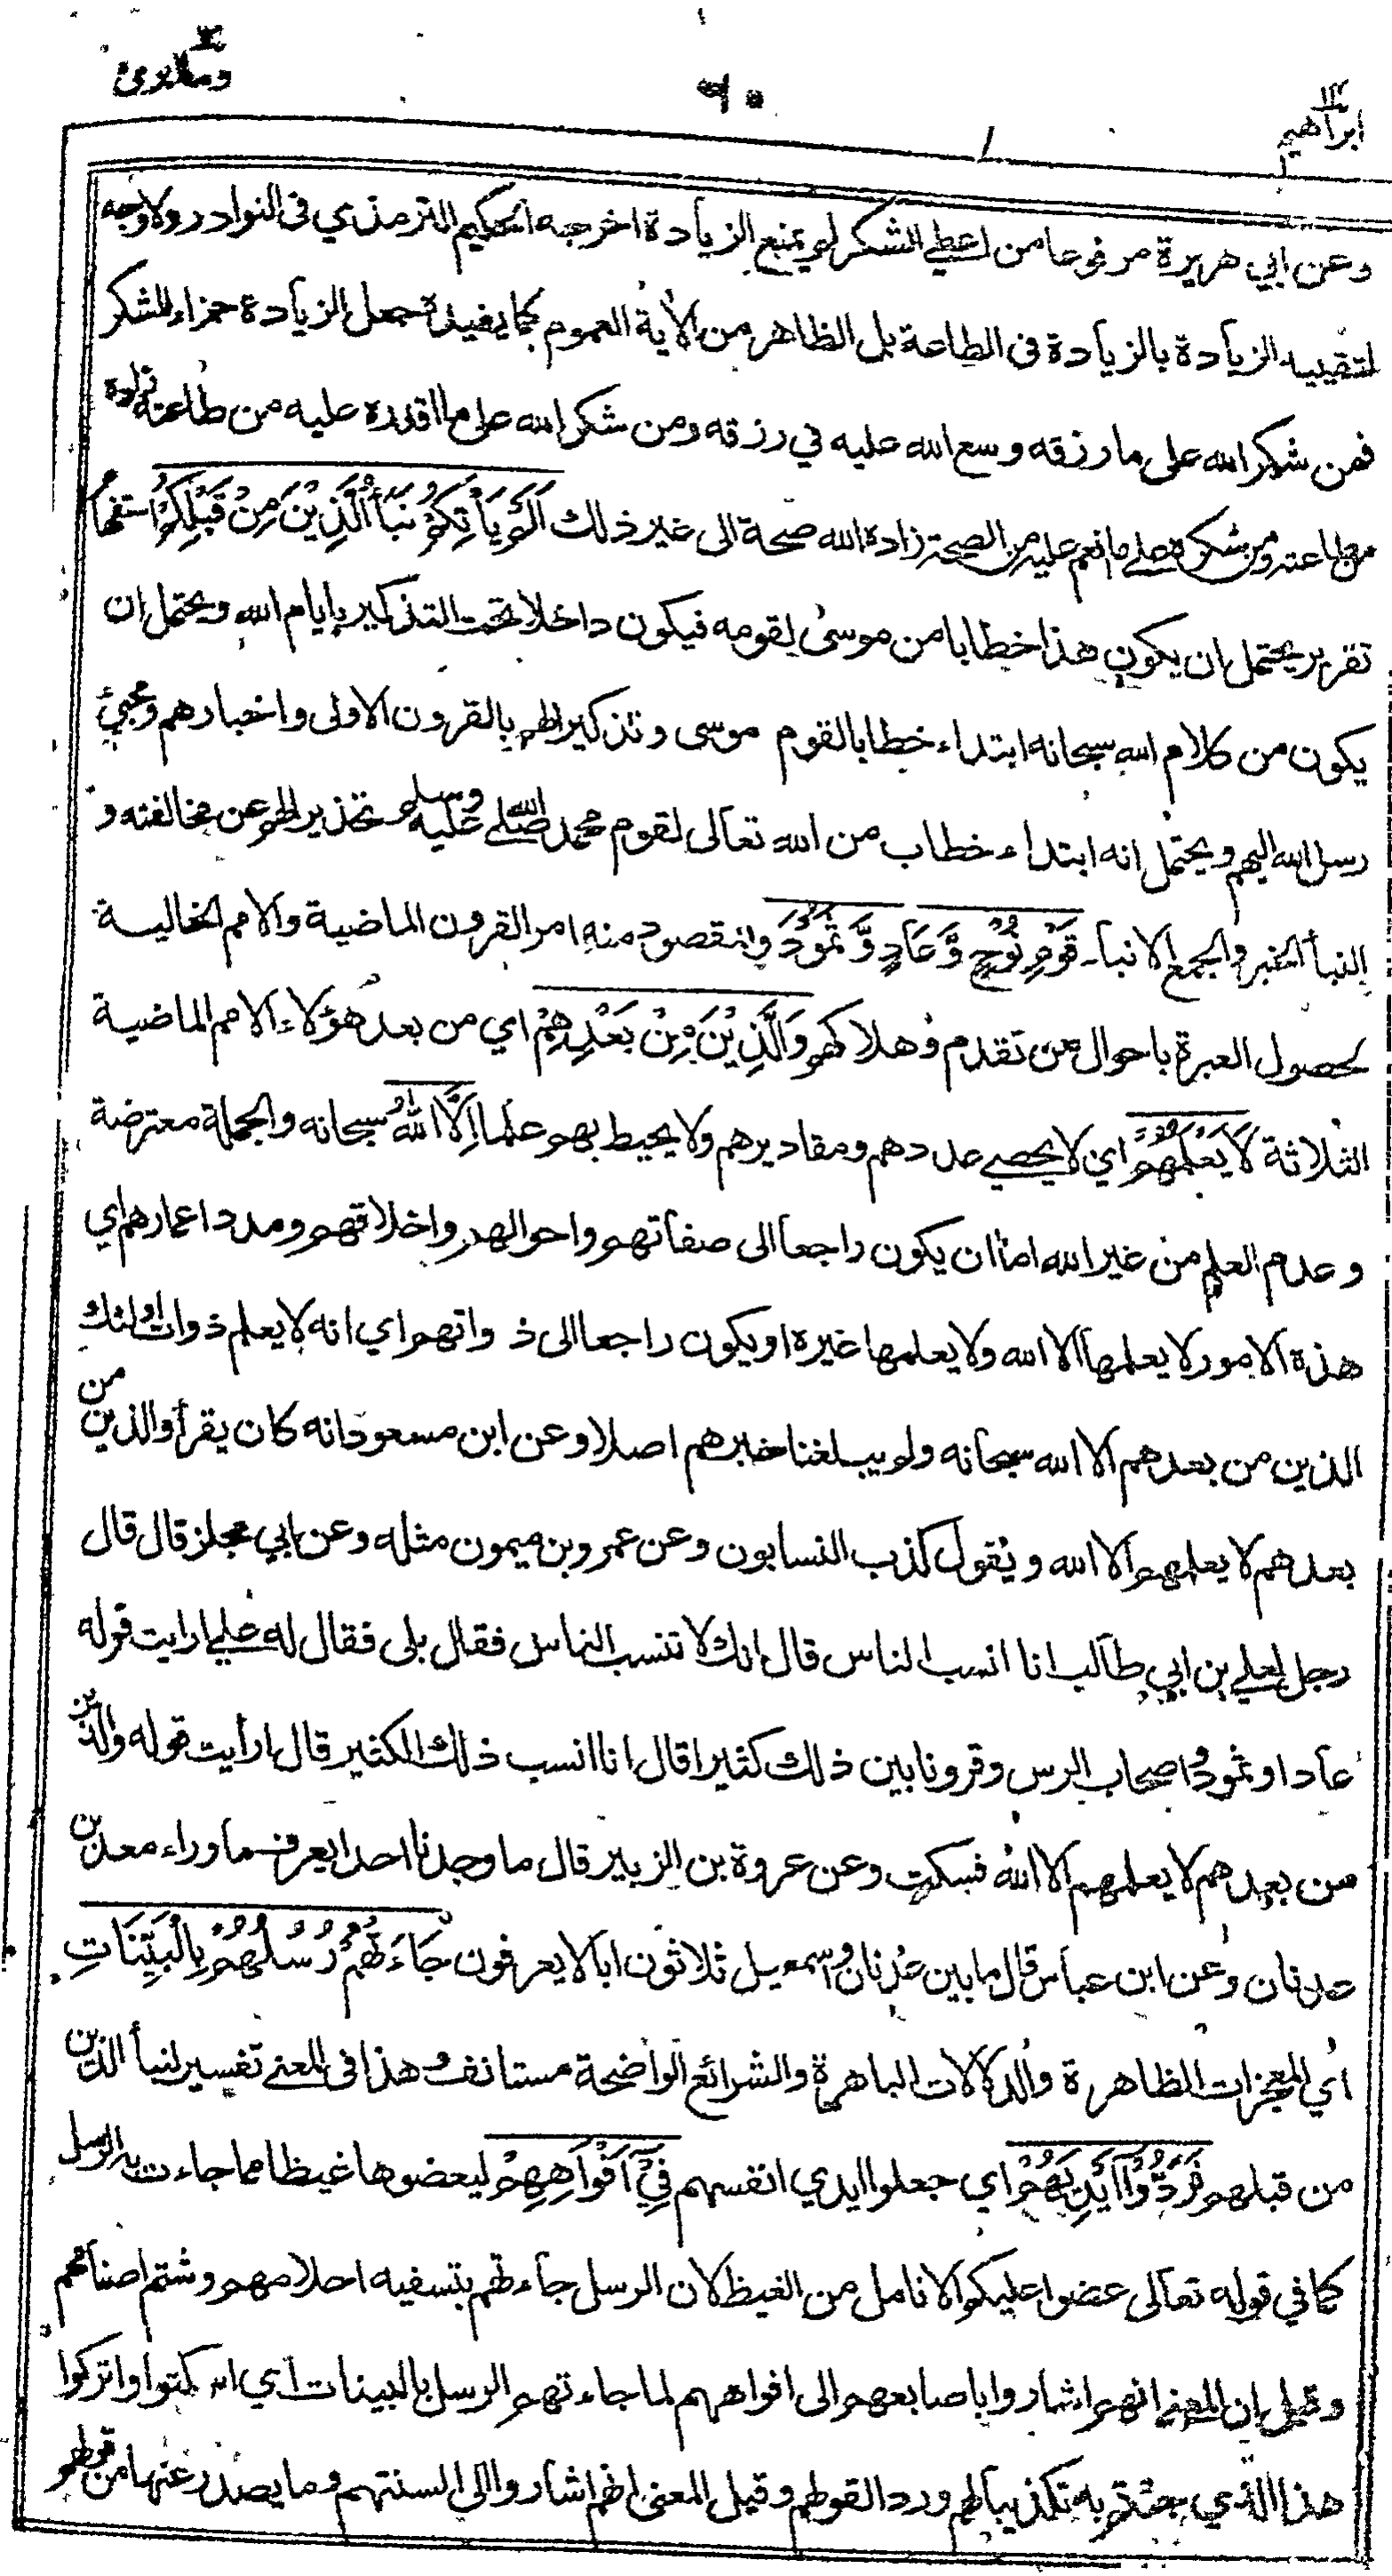 ابراهيم ١٤
٦٠
وما ابرئ ١٣
وعن ابي هريرة مرفوعا من اعطي الشكر لم يمنع الزيادة اخرجه الحكيم الترمذي في النوادر ولا وجه
لتقييد الزيادة بالزيادة في الطاعة بل الظاهر من الأية العموم كما يفيده جعل الزيادة جزاء للشكر
فمن شكر الله على ما رزقه وسع الله عليه في رزقه ومن شكر الله على ما اقدره عليه من طاعته زاده
من طاعته ومن شكره على ما انعم عليه من الصحة زاده الله صحة الى غير ذلك اَلَمْ يَأْتِكُمْ نَبَأُ الَّذِيْنَ مِنْ قَبْلِكُمْ استفهام
تقرير يحتمل ان يكون هذا خطابا من موسى لقومه فيكون داخلا تحت التذكير بايام الله ويحتمل ان
يكون من كلام الله سبحانه ابتداء خطابا لقوم موسى وتذكيرا لهم بالقرون الاولى واخبارهم ومجيئ
رسل الله اليهم ويحتمل انه ابتداء خطاب من الله تعالى لقوم محمد صلى الله عليه وسلم تحذيرا لهم عن مخالفته و
النبأ الخبر والجمع الانباء قَوْمِ نُوْحٍ وَّعَادٍ وَّثَمُوْدَ والمقصود منه امر القرون الماضية والامم الخالية
لحصول العبرة باحوال من تقدم وهلاكهم وَالَّذِيْنَ مِنْ بَعْدِهِمْ اي من بعد هؤلاء الامم الماضية
الثلاثة لَا يَعْلَمُهُمْ اي لا يحصي عددهم ومقاديرهم ولا يحيط بهم علما اِلَّا اللهُ سبحانه والجملة معترضة
وعدم العلم من غير الله اما ان يكون راجعا الى صفاتهم واحوالهم واخلاقهم ومدد اعمارهم اي
هذه الامور لا يعلمها الا الله ولا يعلمها غيره او يكون راجعا الى ذواتهم اي انه لا يعلم ذوات اولئك
الذين من بعدهم الا الله سبحانه ولم يبلغنا خبرهم اصلا وعن ابن مسعود انه كان يقرأ والذين من
بعدهم لا يعلمهم الا الله ويقول كذب النسابون وعن عمرو بن ميمون مثله وعن ابي مجلز قال قال
رجل لعلي بن ابي طالب انا انسب الناس قال انك لا تنسب الناس فقال بلى فقال له علي ارايت قوله
عادا وثمود واصحاب الرس وقرونا بين ذلك كثيرا قال انا انسب ذلك الكثير قال ارأيت قوله والذين
من بعدهم لا يعلمهم الا الله فسكت وعن عروة بن الزبير قال ما وجدنا احدا يعرف ما وراء معد بن
عدنان وعن ابن عباس قال ما بين عدنان واسمعيل ثلاثون ابا لا يعرفون جَاءَتْهُمْ رُسُلُهُمْ بِالْبَيِّنَاتِ
أي المعجزات الظاهرة والدلالات الباهرة والشرائع الواضحة مستانف وهذا في المعنى تفسير لنبأ الذين
من قبلهم فَرَدُّوْا اَيْدِيَهُمْ اي جعلوا ايدي انفسهم فِيْ اَفْوَاهِهِمْ ليعضوها غيظا مما جاءت به الرسل
كما في قوله تعالى عضوا عليكم الانامل من الغيظ لان الرسل جاءتهم بتسفيه احلامهم وشتم اصنامهم
وقيل ان المعنى انهم اشاروا باصابعهم الى افواههم لما جاءتهم الرسل بالبينات اي اسكتوا واتركوا
هذا الذي جئتم به تكذيبا لهم وردا لقولهم وقيل المعنى انهم اشاروا الى السنتهم وما يصدر عنها من قولهم